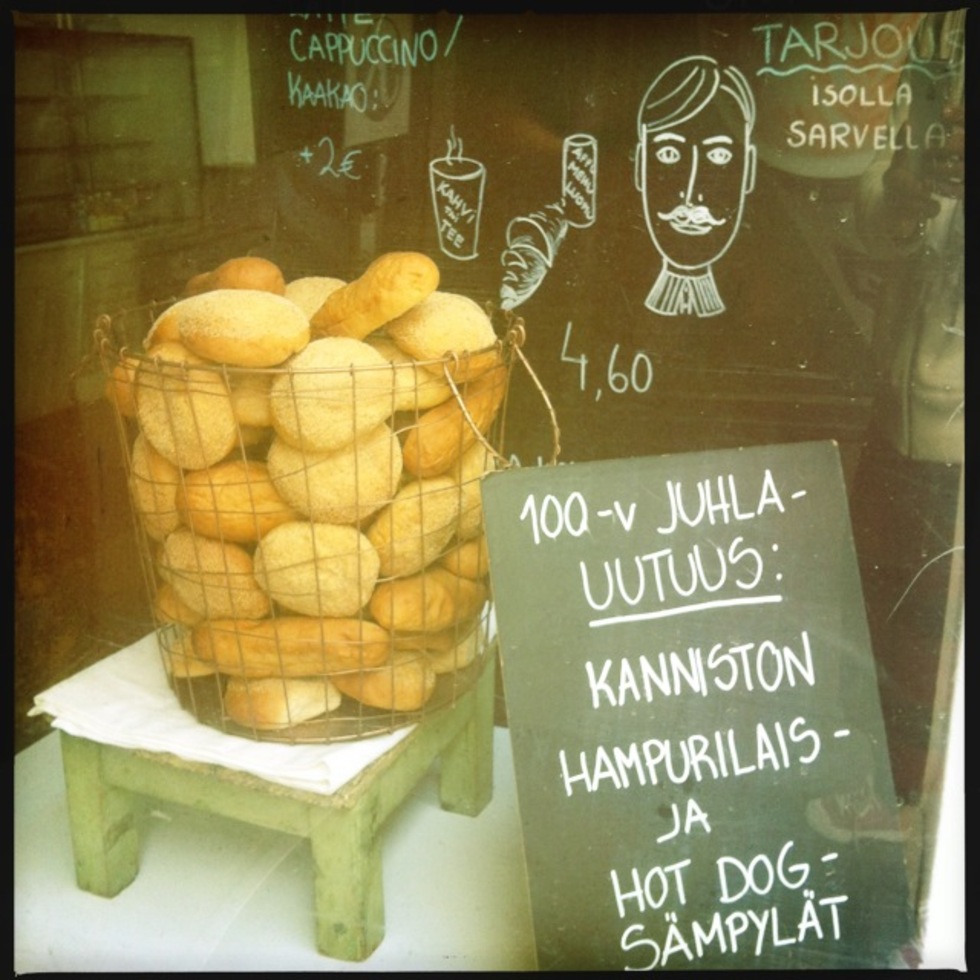 CAPPUCCINO/
KAAKAO:
+2€
KAHVI
TAI
TEE
TARJOUS
ISOLLA
SARVELLA
4,60
100-v JUHLA-
UUTUUS:
KANNISTON
HAMPURILAIS-
JA
HOT DOG-
SÄMPYLÄT